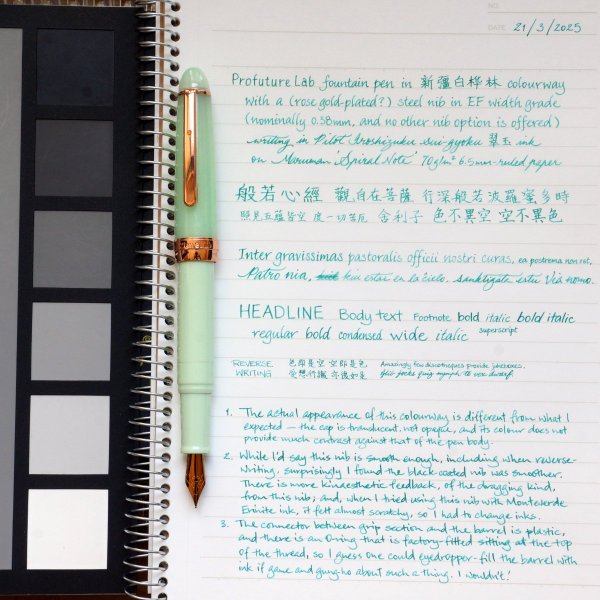 NO.
DATE 21/3/2025
Profuture Lab fountain pen in 新疆白桦林 colourway
with a (rose gold-plated?) steel nib in EF width grade
(nominally 0.38mm, and no other nib option is offered)
writing in Pilot Iroshizuku sui-gyoku 翠玉 ink
on Maruman 'Spiral Note' 70g/m² 6.5mm-ruled paper
般若心經 觀自在菩薩 行深般若波羅蜜多時
照見五蘊皆空 度一切苦厄 舍利子 色不異空 空不異色
Inter gravissimas pastoralis officii nostri curas, ea postrema non est,
Patro nia, kiu estas en la ĉielo. sanktigata estu Via nomo.
HEADLINE Body text Footnote bold italic bold italic
regular bold condensed wide italic superscript
REVERSE 色即是空 空即是色 Amazingly few discotheques provide jukeboxes.
WRITING 受想行識 亦復如是 Glib jocks quiz nymph to vex dwarf.
1. The actual appearance of this colourway is different from what I
expected — the cap is translucent, not opaque, and its colour does not
provide much contrast against that of the pen body.
2. While I'd say this nib is smooth enough, including when reverse-
writing, surprisingly I found the black-coated nib was smoother.
There is more kinaesthetic feedback, of the dragging kind,
from this nib; and, when I tried using this nib with Monteverde
Erinite ink, it felt almost scratchy, so I had to change inks.
3. The connector between grip section and the barrel is plastic,
and there is an O-ring that is factory-fitted sitting at the top
of the thread, so I guess one could eyedropper-fill the barrel with
ink if game and gung-ho about such a thing. I wouldn't!